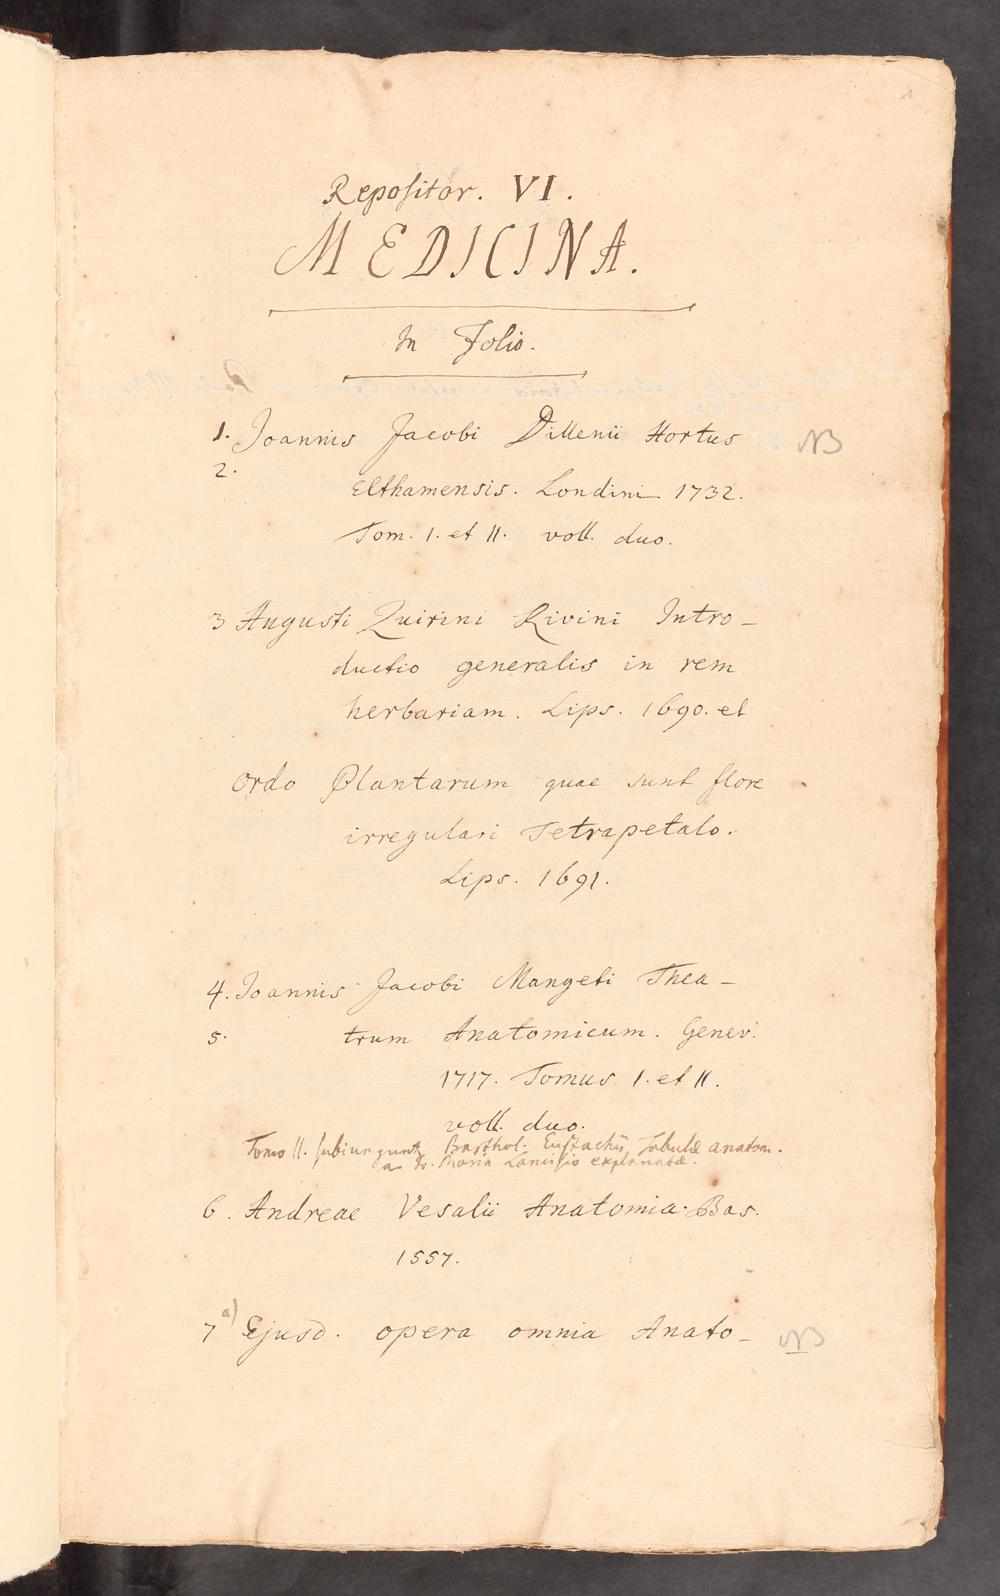 1
Repositor. VI.
MEDICINA.
In Folio.
1. Joannis Jacobi Dillenii Hortus NB
2. Elthamensis. Londini 1732.
Tom. I. et II. voll. duo.
3 Augusti Quirini Rivini Intro-
ductio generalis in rem
herbariam. Lips. 1690. et
Ordo Plantarum quae sunt flore
irregulari Tetrapetalo.
Lips. 1691.
4. Joannis Jacobi Mangeti Thea-
5. trum Anatomicum. Genev.
1717. Tomus I. et II.
voll. duo.
Tomo II. subiungunt Barthol. Eustachii Tabulæ anatom.
a Jo. Maria Lancisio explanatæ.
6. Andreae Vesalii Anatomia. Bas.
1557.
7 a) Ejusd. opera omnia Anato- NB